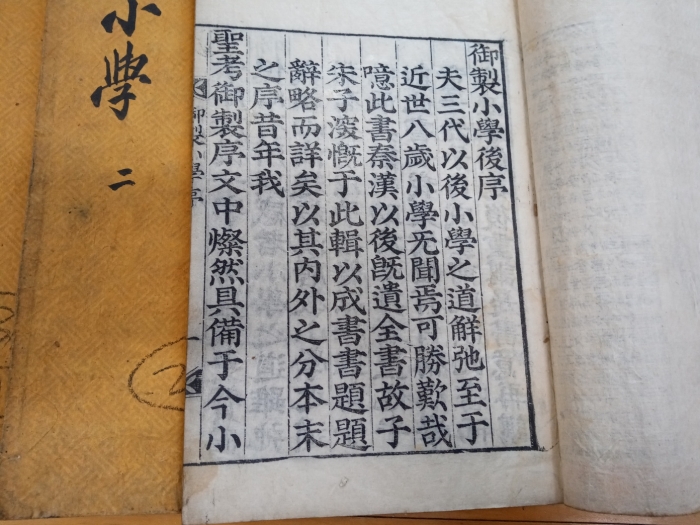 御製小學後序
夫三代以後小學之道鮮弛至于
近世八歲小學旡聞焉可勝歎哉
噫此書秦漢以後旣遺全書故子
朱子深慨于此輯以成書書題題
辭略而詳矣以其內外之分本末
之序昔年我
聖考御製序文中燦然具備于今小
御製小學序
小學
二